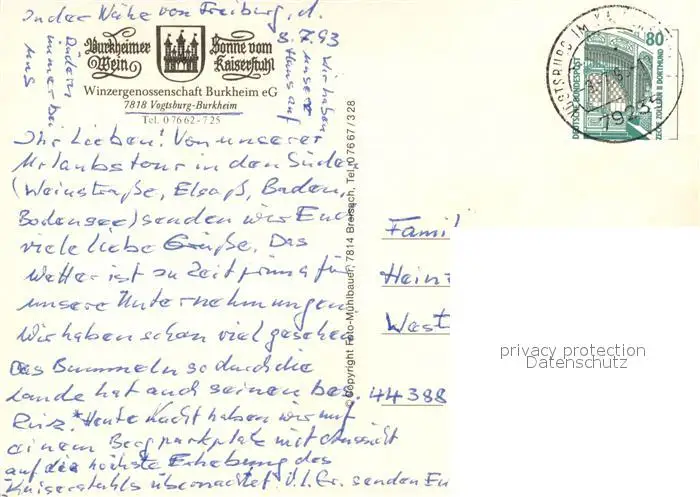 In der Nähe von Freiburg, d.
8.7.93
Burkheimer Wein
Sonne vom Kaiserstuhl
Winzergenossenschaft Burkheim eG
7818 Vogtsburg-Burkheim
Tel. 0 76 62 - 7 25
Ihr Lieben! Von unserer
Urlaubstour in den Süden
(Weinstraße, Elsaß, Baden,
Bodensee) senden wir Euch
viele liebe Grüße. Das
Wetter ist zu Zeit prima für
unsere Unternehmungen.
Wir haben schon viel gesehen
Das Bummeln so durch die
Lande hat auch seinen bes.
Reiz. *Heute Nacht haben wir auf
einem Bergparkplatz mit Aussicht
auf die höchste Erhebung des
Kaiserstuhls übernachtet. V. l. Gr. senden Eu
Wir haben
unser
Haus auf
Rädern
immer bei
uns
© Copyright Foto-Mühlbauer, 7814 Breisach, Tel. 0 76 67 / 328
80
DEUTSCHE BUNDESPOST
ZECHE ZOLLERN II DORTMUND
VOGTSBURG IM KA
79235
Fami
Hein
West
44388
privacy protection
Datenschutz